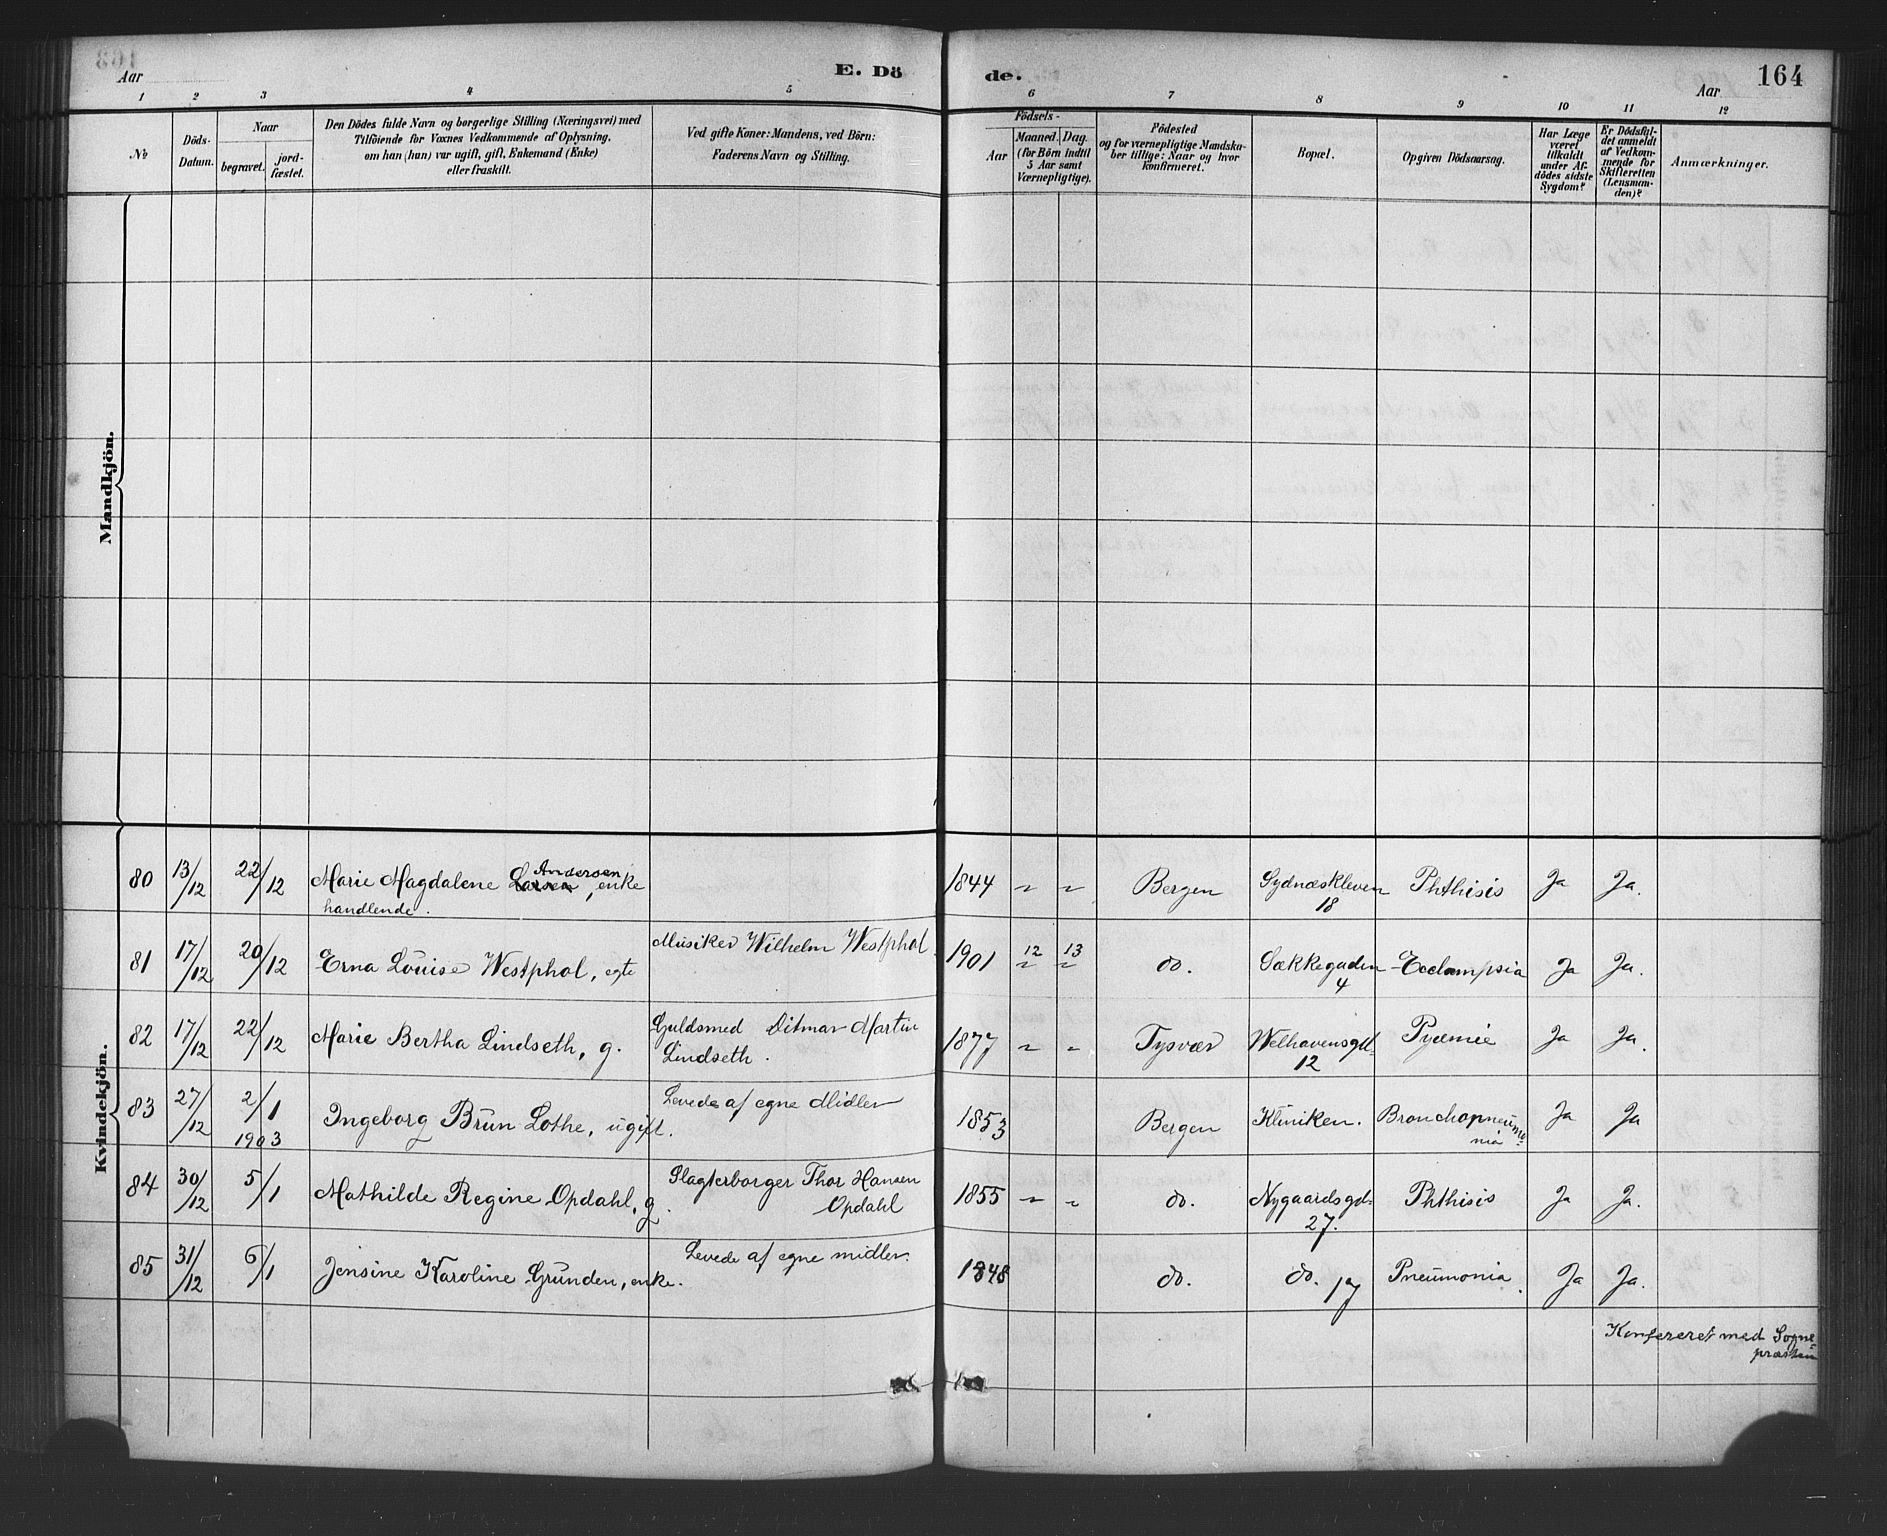 Aar
E. Dö
de.
Aar
164
1 2 3 4 5 6 7 8 9 10 11 12
№
Döds-
Datum.
Naar
begravet.
jord-
fæstet.
Den Dödes fulde Navn og borgerlige Stilling (Næringsvei) med
Tilföiende for Voxnes Vedkommende af Oplysning,
om han (hun) var ugift, gift, Enkemand (Enke)
eller fraskilt.
Ved gifte Koner: Mandens, ved Börn:
Faderens Navn og Stilling.
Födsels-
Aar
Maaned. Dag.
(for Börn indtil
5 Aar samt
Værnepligtige).
Födested
og for værnepligtige Mandska-
ber tillige: Naar og hvor
konfirmeret.
Bopæl.
Opgiven Dödsaarsag.
Har Læge
været
tilkaldt
under Af-
dödes sidste
Sygdom?
Er Dödsfal-
det anmeldt
af Vedkom-
mende for
Skifteretten
(Lensman-
den)?
Anmærkninger.
Mandkjön.
Kvindekjön.
80 13/12 22/12 Marie Magdalene Larsen Andersen, enke 1844 " " Bergen Sydnæskleven Phthisis Ja Ja.
handlende. 18
81 17/12 20/12 Erna Louise Westphal, egte Musiker Wilhelm Westphal. 1901 12 13 do. Sækkegaden Eclampsia Ja Ja.
" " 4
82 17/12 22/12 Marie Bertha Lindseth, g. Guldsmed Ditmar Martin 1877 " " Tysvær Welhavensgt. Pyæmie Ja Ja.
Lindseth. 12
83 27/12 2/1 Ingeborg Brun Lothe, ugift. Levede af egne Midler 1853 Bergen Kliniken. Bronchopneumo- Ja Ja
1903 nia
84 30/12 5/1 Mathilde Regine Opdahl, g. Slagterborger Thor Hansen 1855 " " do. Nygaardsgd. Phthisis Ja Ja.
Opdahl 27.
85 31/12 6/1 Jensine Karoline Grunden, enke. Levede af egne midler. 1848 do. do. 17 Pneumonia. Ja Ja.
Konfereret med Sogne-
præsten